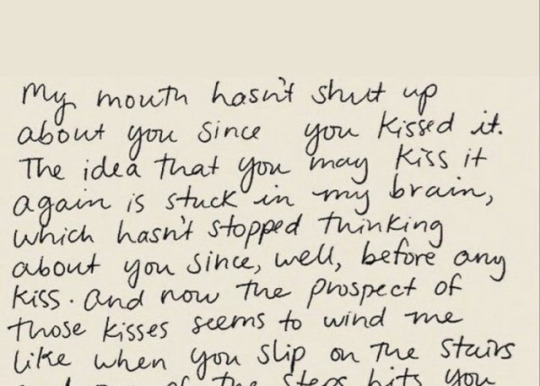 My mouth hasn't shut up
about you since you kissed it.
The idea that you may kiss it
again is stuck in my brain,
which hasn't stopped thinking
about you since, well, before any
kiss. And now the prospect of
those kisses seems to wind me
like when you slip on the stairs
of the steps hits you